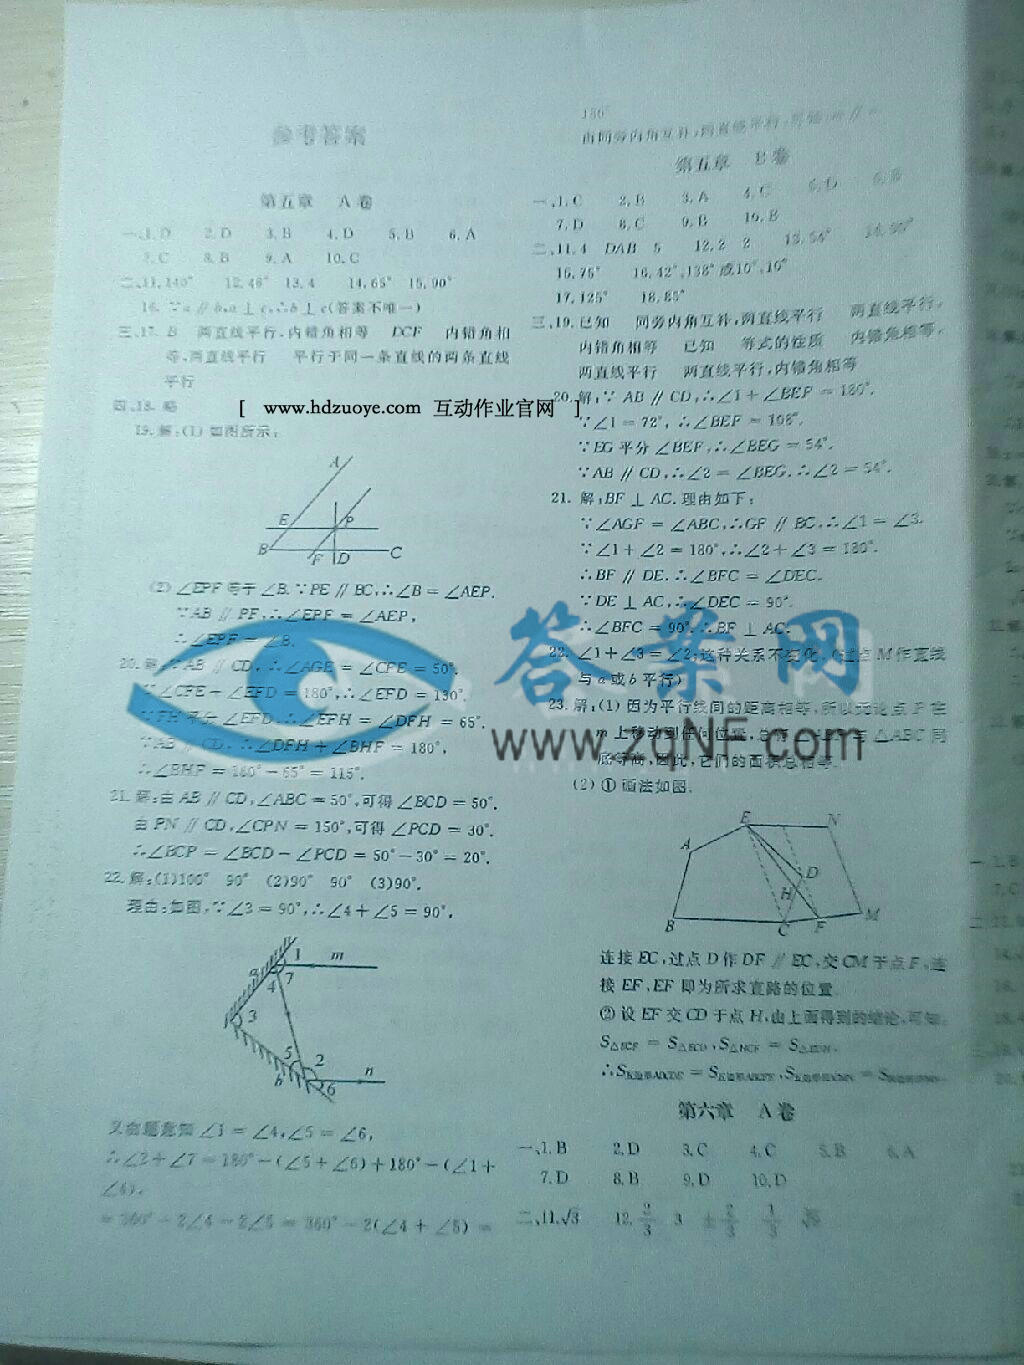 参考答案
第五章 A卷
一、1. D 2. D 3. B 4. D 5. B 6. A
7. C 8. B 9. A 10. C
二、11. 140° 12. 48° 13. 4 14. 65° 15. 90°
16. ∵a∥b, a⊥c, ∴b⊥c(答案不唯一)
三、17. B 两直线平行,内错角相等 DCF 内错角相
等,两直线平行 平行于同一条直线的两条直线
平行
四、18. 略
[ www.hdzuoye.com 互动作业官网 ]
19. 解:(1) 如图所示:
A
E P
B F D C
(2) ∠EPF 等于∠B. ∵PE∥BC, ∴∠B=∠AEP.
∵AB∥PF, ∴∠EPF=∠AEP,
∴∠EPF=∠B.
20. 解:∵AB∥CD, ∴∠AGE=∠CFE=50°.
∵∠CFE+∠EFD=180°, ∴∠EFD=130°.
∵FH平分∠EFD, ∴∠EFH=∠DFH=65°.
∵AB∥CD, ∴∠DFH+∠BHF=180°,
∴∠BHF=180°-65°=115°.
21. 解:由AB∥CD, ∠ABC=50°,可得∠BCD=50°.
由PN∥CD, ∠CPN=150°,可得∠PCD=30°.
∴∠BCP=∠BCD-∠PCD=50°-30°=20°.
22. 解:(1)100° 90° (2)90° 90° (3)90°.
理由:如图, ∵∠3=90°, ∴∠4+∠5=90°.
1 m
4 7
3
5 2 n
b 6
又由题意知∠1=∠4, ∠5=∠6,
∴∠2+∠7=180°-(∠5+∠6)+180°-(∠1+
∠4).
=360°-2∠4-2∠5=360°-2(∠4+∠5)=
180°
由同旁内角互补,两直线平行,可知
第五章 B卷
一、1. C 2. B 3. A 4. C 5. D 6. B
7. D 8. C 9. B 10. B
二、11. 4 DAB 5 12. 2 2 13. 54°
15. 75° 16. 42°,138°或10°,10°
17. 125° 18. 85°
三、19. 已知 同旁内角互补,两直线平行 两直线平行,
内错角相等 已知 等式的性质 内错角相等,
两直线平行 两直线平行,内错角相等
20. 解:∵AB∥CD, ∴∠1+∠BEF=180°.
∵∠1=72°, ∴∠BEF=108°.
∵EG平分∠BEF, ∴∠BEG=54°.
∵AB∥CD, ∴∠2=∠BEG. ∴∠2=54°.
21. 解:BF⊥AC. 理由如下:
∵∠AGF=∠ABC, ∴GF∥BC, ∴∠1=∠3.
∵∠1+∠2=180°, ∴∠2+∠3=180°.
∴BF∥DE. ∴∠BFC=∠DEC.
∵DE⊥AC, ∴∠DEC=90°.
∴∠BFC=90°. ∴BF⊥AC.
答案网
www.zqNF.com
22. ∠1+∠3=∠2,这种关系不变化. (过点M作直线
与a或b平行)
23. 解:(1) 因为平行线间的距离相等,所以无论点P在
m上移动到任何位置,总有△ABP与△ABC同
底等高,因此,它们的面积总相等.
(2) ①画法如图.
E N
A
D
H
B C F M
连接EC,过点D作DF∥EC,交CM于点F,连
接EF,EF即为所求直路的位置.
②设EF交CD于点H,由上面得到的结论,可知:
第六章 A卷
一、1. B 2. D 3. C 4. C 5. B 6. A
7. D 8. B 9. D 10. D
二、11. √3 12. 2/3 3 ±2/3 1/3